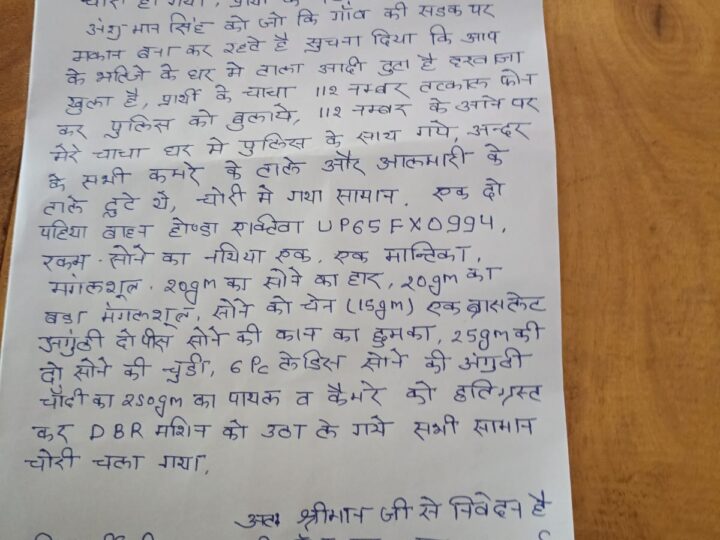 अंशुमान सिंह को जो कि गाँव की सडक पर
मकान बना कर रहते है सुचना दिया कि आप
के भतिजे के घर मे ताला आदी टुटा है दरवाजा
खुला है, प्रार्थी के चाचा 112 नम्बर तत्काल फोन
कर पुलिस को बुलाये, 112 नम्बर के आने पर
मेरे चाचा घर मे पुलिस के साथ गये, अन्दर
के सभी कमरे के ताले और आलमारी के
ताले टुटे थे, चोरी मे गया सामान. एक दो
पहिया वाहन होण्डा एक्टिवा UP65FX0994,
रकम. सोने का नथिया एक, एक मान्टिका,
मंगलशूल. 20gm का सोने का हार, 20gm का
बडा मंगलशूल, सोने की चेन (15gm) एक ब्रासलेट
अंगुठी दो पीस सोने की कान का झुमका, 25gm की
दो सोने की चुडी, 6Pc लेडिस सोने की अंगुठी
चाँदी का 250gm का पायल व कैमरे को क्षतिग्रस्त
कर DBR मशिन को उठा ले गये सभी सामान
चोरी चला गया.
अतः श्रीमान जी से निवेदन है